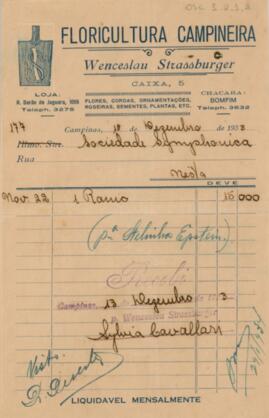 OSC 3.2.1.2
FLORICULTURA CAMPINEIRA
Wenceslau Strassburger
CAIXA, 5
LOJA:
R. Barão de Jaguara, 1099
Teleph. 3275
FLORES, COROAS, ORNAMENTAÇÕES,
ROSEIRAS, SEMENTES, PLANTAS, ETC.
CHACARA:
BOMFIM
Teleph. 3632
177
Campinas, 1º Dezembro de 1933
Illmo. Snr. Sociedade Symphonica
Rua
Nesta
DEVE
Nov. 22 1 Ramo 15 000
(pª Stelinha Epstein)
Recebi
Campinas, 13 Dezembro 3
p. Wenceslau Strassburger
Sylvia Cavallari
Visto
LIQUIDAVEL MENSALMENTE